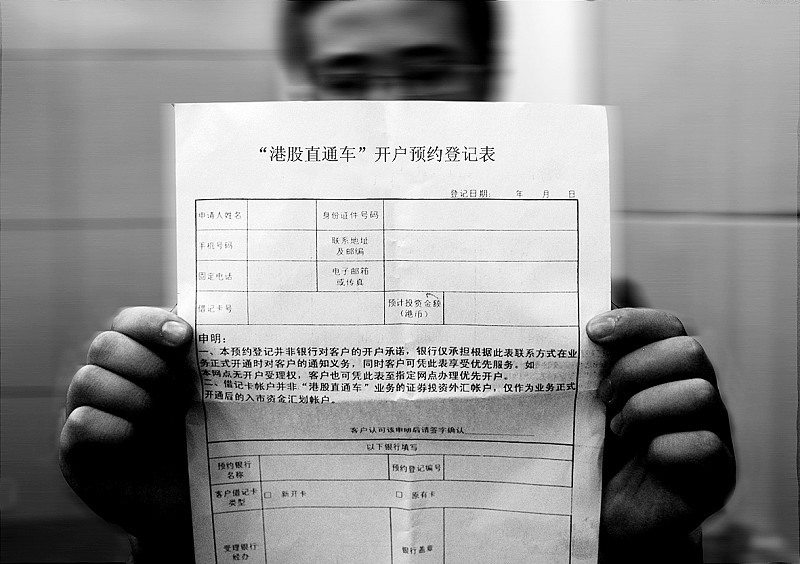 “港股直通车”开户预约登记表
登记日期: 年 月 日
申请人姓名 身份证件号码
手机号码 联系地址
及邮编
固定电话 电子邮箱
或传真
借记卡号 预计投资金额
(港币)
申明:
一、本预约登记并非银行对客户的开户承诺，银行仅承担根据此表联系方式在业
务正式开通时对客户的通知义务，同时客户可凭此表享受优先服务。如
本网点无开户受理权，客户也可凭此表至指定网点办理优先开户。
二、借记卡帐户并非“港股直通车”业务的证券投资外汇帐户，仅作为业务正式
开通后的入市资金汇划帐户。
客户认可该申明后请签字确认
以下银行填写
预约银行
名称 预约登记编号
客户借记卡
类型 □ 新开卡 □ 原有卡
受理银行
经办 银行盖章